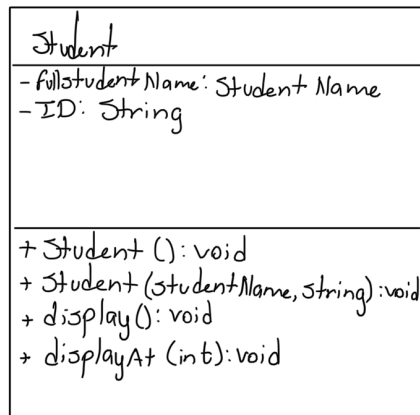 Student
- fullstudentName: Student Name
- ID: String
+ Student (): void
+ Student (studentName, string): void
+ display(): void
+ displayAt (int): void